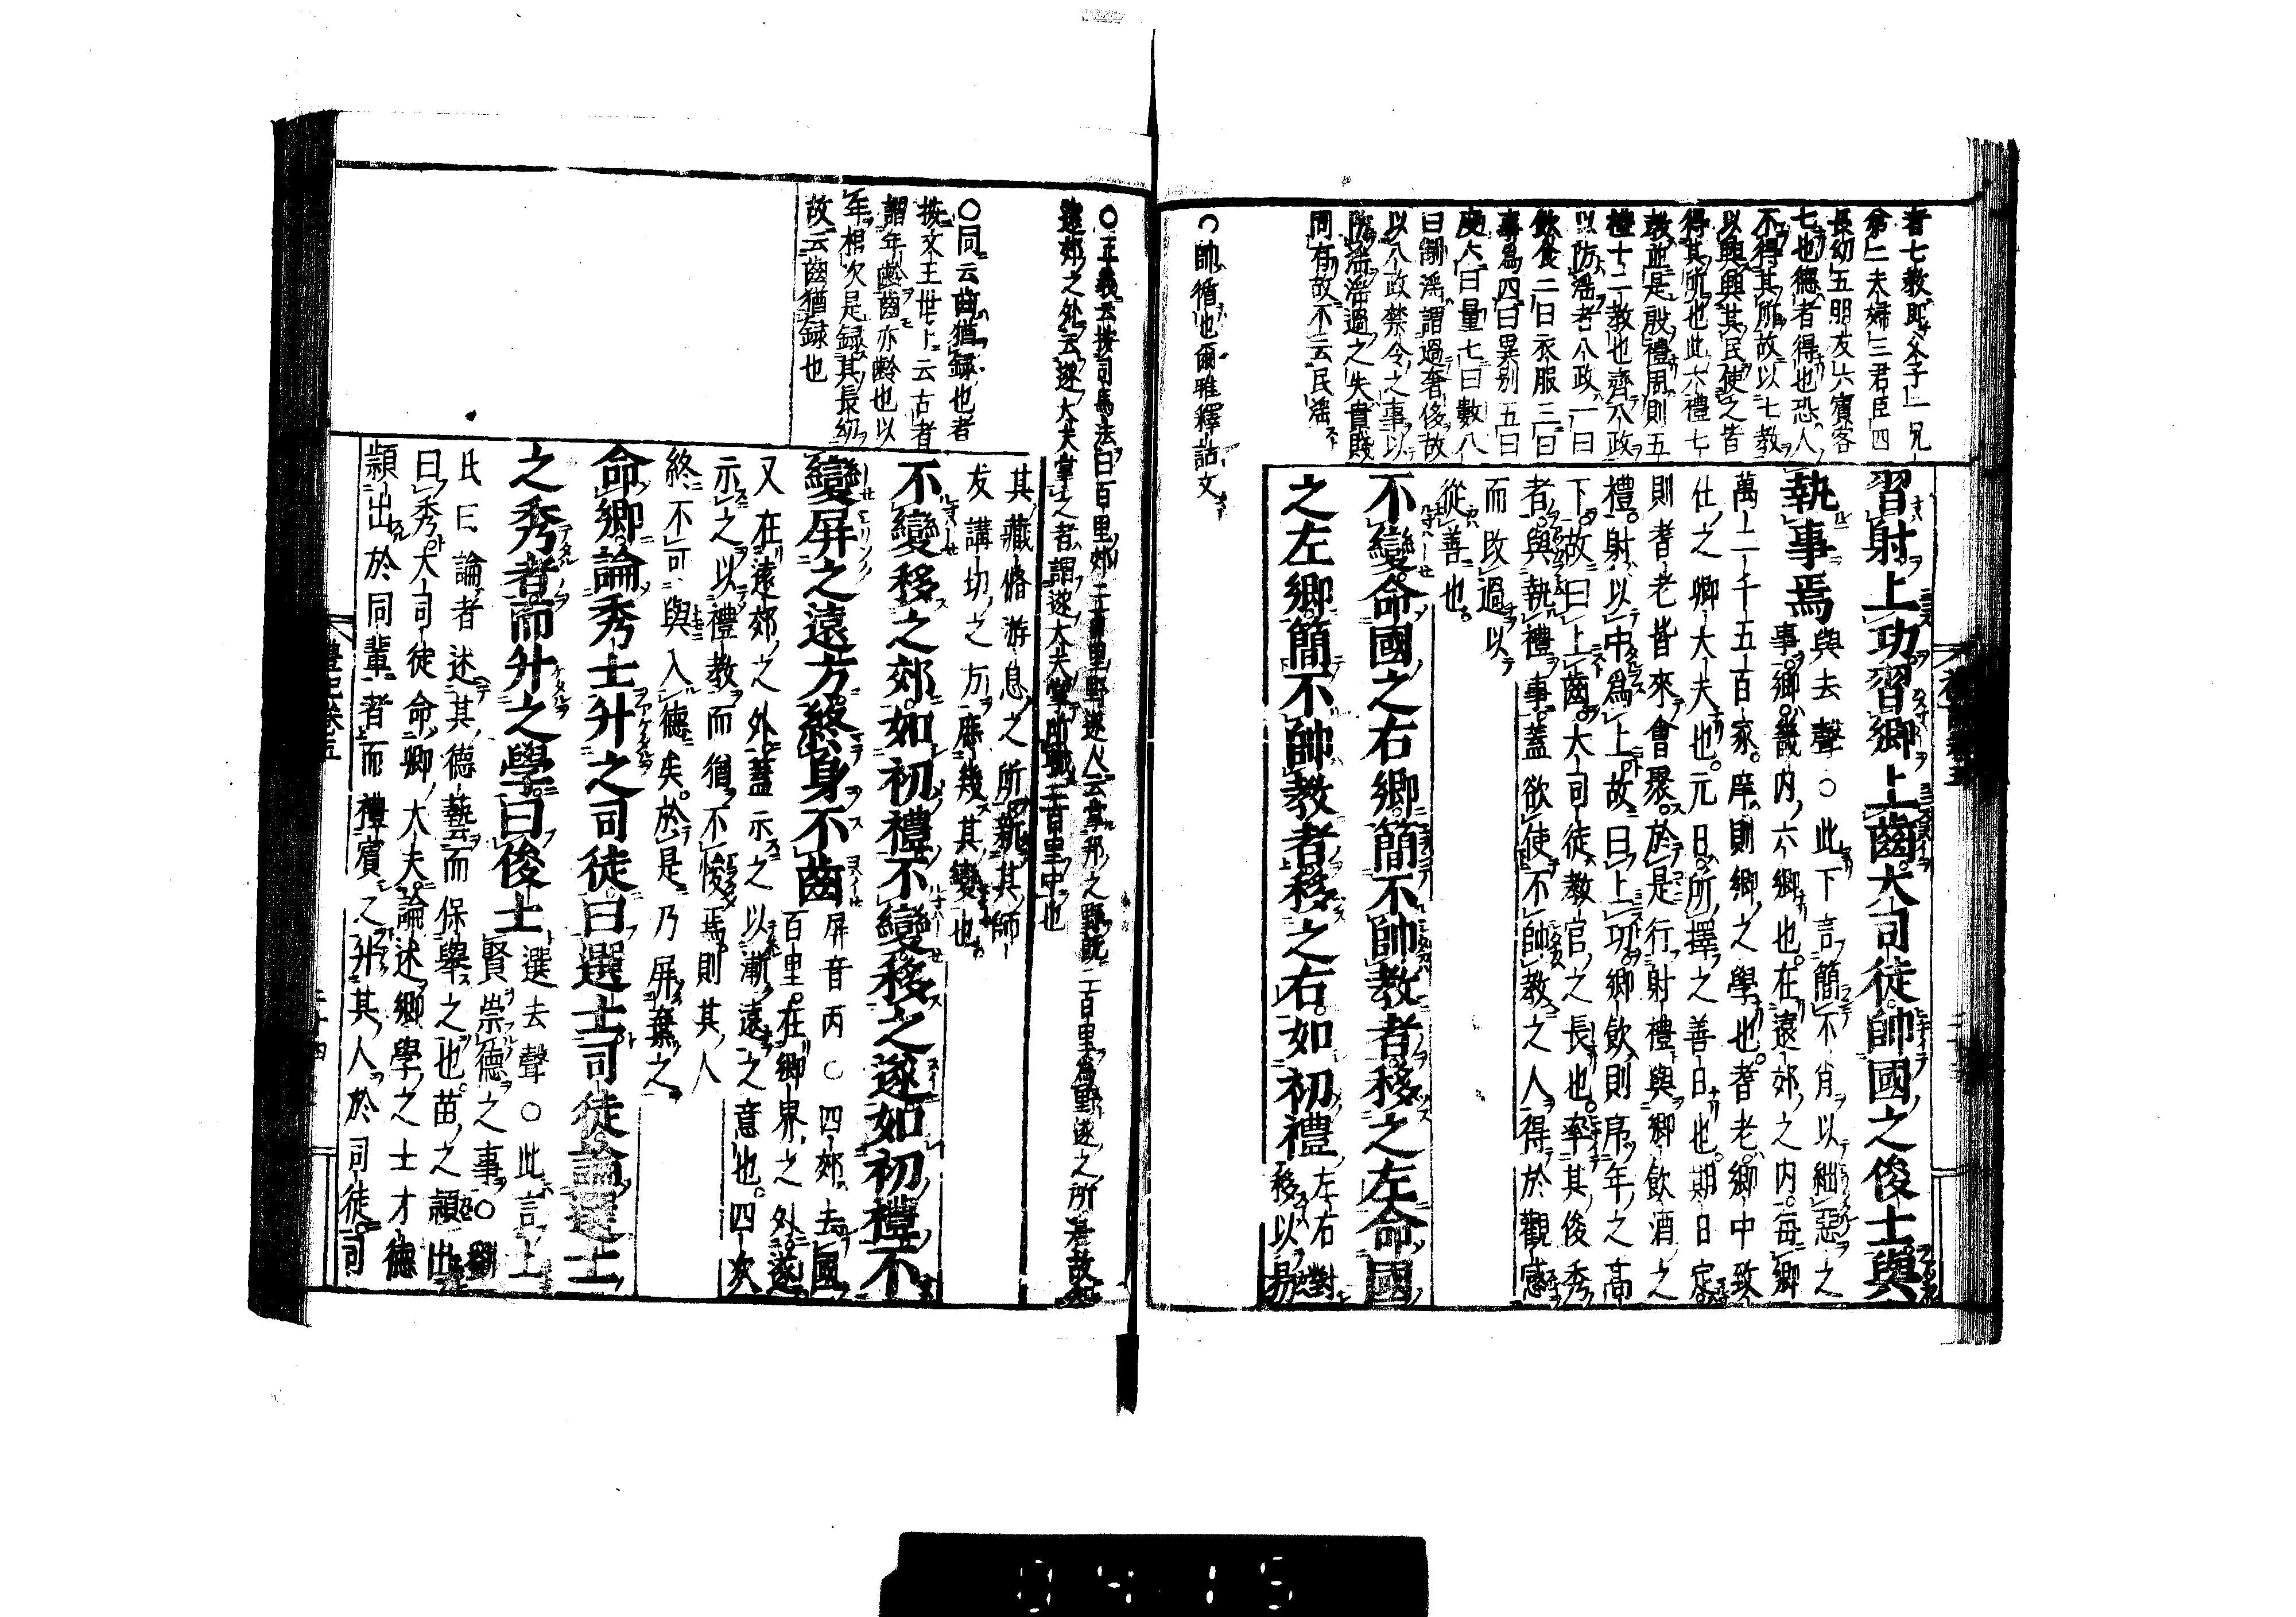 者七教即父子一兄
弟二夫婦三君臣四
長幼五朋友六賓客
七也德者得也恐人
不得其所故以七教
以興興其民使之皆
得其所也此六禮七
教並是殷禮周則五
禮十二教也齊八政
以防淫者八政一曰
飲食二曰衣服三曰
事爲四曰異別五曰
度六曰量七曰數八
曰制淫謂過奢侈故
以八政禁令之事以
防淫淫過之失貴賤
同有故不云民淫
○帥循也爾雅釋詁文
習射上功習鄉上齒大司徒帥國之俊士與
執事焉
與去聲○此下言簡不肖以絀惡之
事鄉畿內六鄉也在遠郊之內每鄉
萬二千五百家庠則鄉之學也耆老鄉中致
仕之卿大夫也元日所擇之善日也期日定
則耆老皆來會聚於是行射禮與鄉飲酒之
禮射以中爲上故曰上功鄉飲則序年之高
下故曰上齒大司徒教官之長也率其俊秀
者與執禮事蓋欲使不帥教之人得於觀感
而改過以
從善也
不變命國之右鄉簡不帥教者移之左命國
之左鄉簡不帥教者移之右如初禮
左右對
移以易
○正義云按司馬法曰百里郊二百里野遂人云掌邦之野
遠郊之外云遂大夫掌之者謂遂大夫掌所職二百里中也
○同云齒猶録也者
按文王世上云古者
謂年齡齒亦齡也以
年相次是録其長幼
故云齒猶録也
其藏脩游息之所新其師
友講切之方庶幾其變也
不變移之郊如初禮不變移之遂如初禮不
變屏之遠方終身不齒
屏音丙○四郊去國
百里在鄉界之外遂
又在遠郊之外蓋示之以漸遠之意也四次
示之以禮教而猶不悛焉則其人
終不可與入德矣於是乃屏棄之
命鄉論秀士升之司徒曰選士司徒論選士
之秀者而升之學曰俊士
選去聲○此言上
賢崇德之事○劉
氏曰論者述其德藝而保舉之也苗之頴出
曰秀大司徒命鄉大夫論述鄉學之士才德
頴出於同輩者而禮賓之升其人於司徒司
禮記卷五
0415